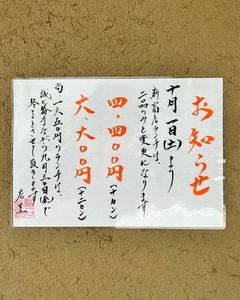 お知らせ
十月一日(土)より
新宿店ランチは、
二品のみと変更になります
四、四〇〇円(十カン)
六、六〇〇円(十二カン)
尚 一、六五〇円のランチは、
誠に勝手ながら九月三〇日(金)で
終了とさせて頂きます
店主